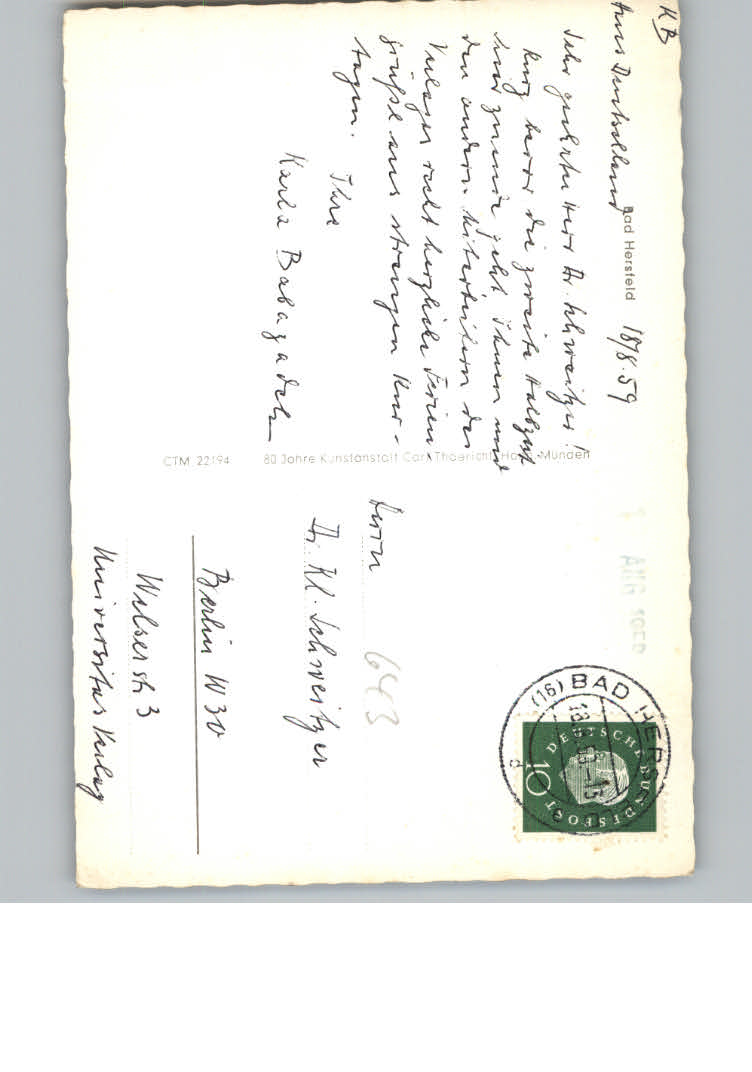 KB
Aus Deutschland
Bad Hersfeld 18/8.59
Sehr geehrter Herr Dr. Schweitzer!
Kurz bevor die zweite Halbzeit
hier zuende geht Ihnen und
den andern Mitarbeitern des
Verlages recht herzliche Ferien
grüße aus strengen Kur-
tagen.
Ihre
Karla
CTM 22194 80 Jahre Kunstanstalt Carl Thoericht, Hann. Münden
1 AUG
(16) BAD HERSFELD
18.8.59-13
d
DEUTSCHE BUNDESPOST
10
Herrn
643
Dr. Kl. Schweitzer
Berlin W 30
Welserstr 3
Universitas Verlag